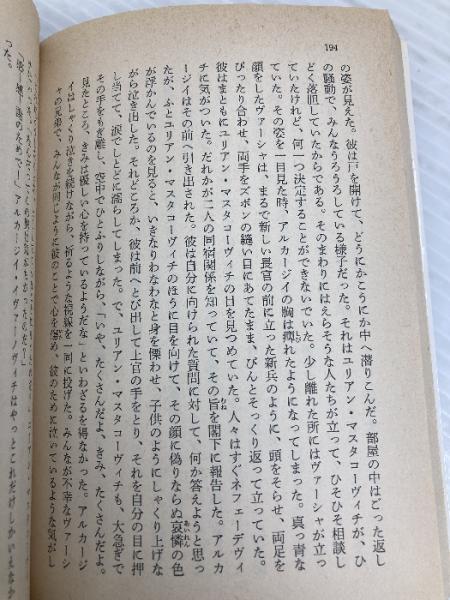 194
の姿が見えた。彼は戸を開けて、どうにかこうにか中へ潜りこんだ。部屋の中はごった返し
の騒動で、みんなうろうろしている様子だった。それはユリアン・マスタコーヴィチが、ひ
どく落胆していたからである。そのまわりにはえらそうな人たちが立って、ひそひそ相談し
ていたけれど、何一つ決定することができないでいた。少し離れた所にはヴァーシャが立っ
ていた。その姿を一目見た時、アルカージイの胸は痺れたようになってしまった。真っ青な
顔をしたヴァーシャは、まるで新しい長官の前に立った新兵のように、頭をそらせ、両足を
ぴったり合わせ、両手をズボンの縫い目にあてたまま、ぴんとそっくり返って立っていた。
彼はまともにユリアン・マスタコーヴィチの目を見つめていた。人々はすぐネフェーデヴィ
チに気がついた。だれかが二人の同宿関係を知っていて、その旨を閣下に報告した。アルカ
ージイはその前へ引き出された。彼は自分に向けられた質問に対して、何か答えようと思っ
たが、ふとユリアン・マスタコーヴィチのほうに目を向けて、その顔に偽りならぬ哀憐の色
あいれん
が浮かんでいるのを見ると、いきなりわなわなと身を慄わせ、子供のようにしゃくり上げな
がら泣き出した。それどころか、彼は前へとび出して上官の手をとり、それを自分の目に押
し当てて、涙でしとどに濡らしてしまった。で、ユリアン・マスタコーヴィチも、大急ぎで
その手をもぎ離し、空中でひとふりしながら、「いや、たくさんだよ、きみ、たくさんだよ。
見たところ、きみは優しい心を持っているようだな」といわざるを得なかった。アルカージ
イはしゃくり泣きを続けながら、祈るような視線を一同に投げた。みんなが不幸なヴァーシ
ャの兄弟で、みんなが同じように彼のことで心を悩め、彼のために泣いているような気がし
アルカージイ・イヴァーノヴィチはやっとこれだけしかいえなか
った。